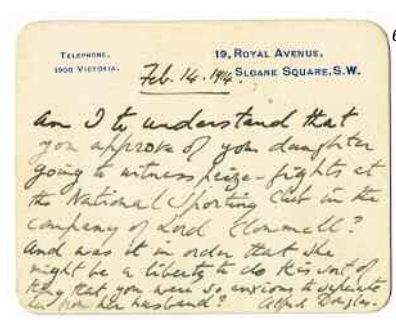 TELEPHONE,
1900 VICTORIA.
19, ROYAL AVENUE,
SLOANE SQUARE, S.W.
Feb. 14. 1914.
Am I to understand that
you approve of your daughter
going to witness prize-fights at
the National Sporting Club in the
company of Lord Clonmell?
And was it in order that she
might be at liberty to do this sort of
thing that you were so anxious to separate
her from her husband? Alfred Douglas.
6